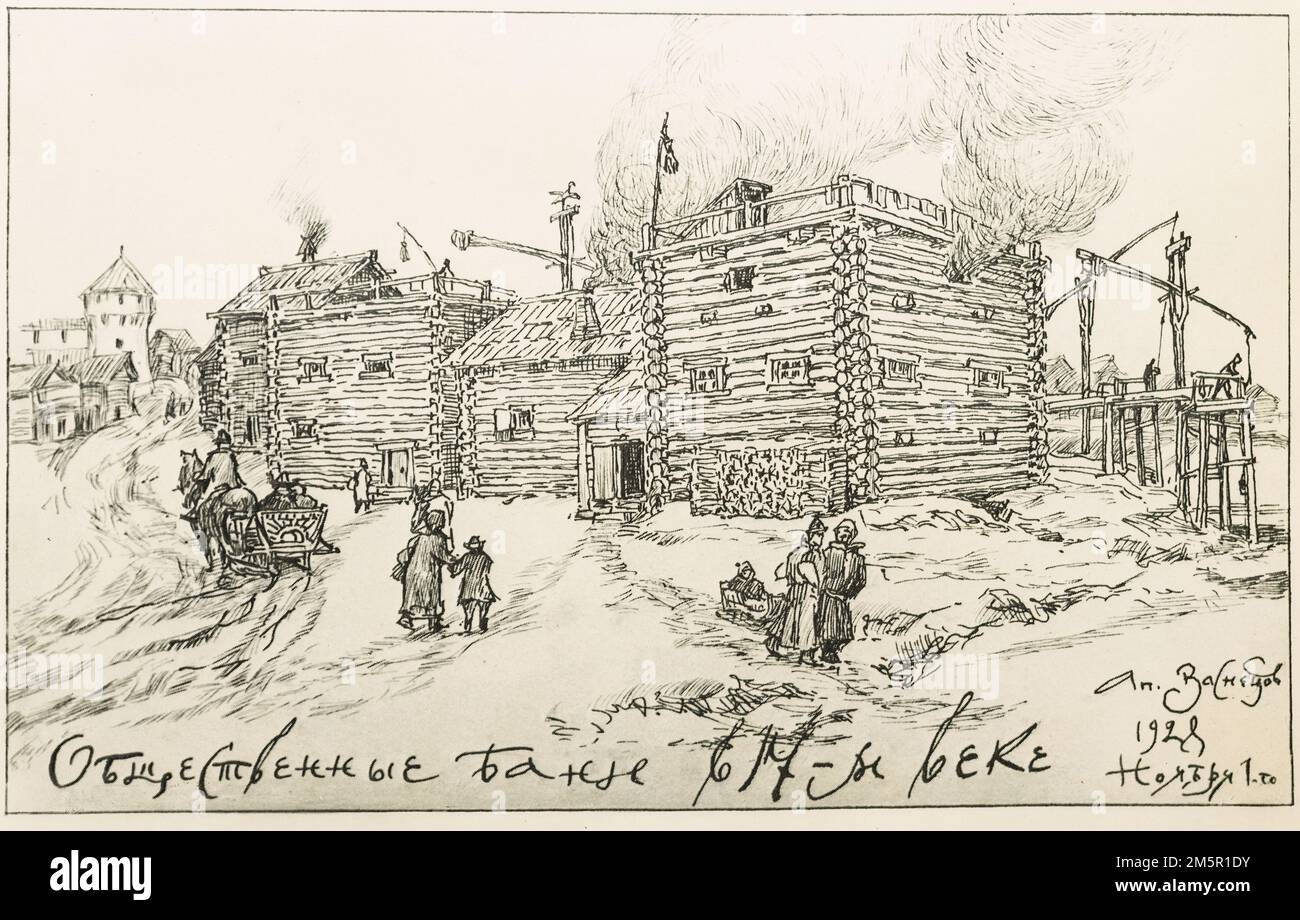 Общественные бани в 17-м веке
Ап. Васнецов
1928
Ноября 1.го
alamy
Image ID: 2M5R1DY
www.alamy.com